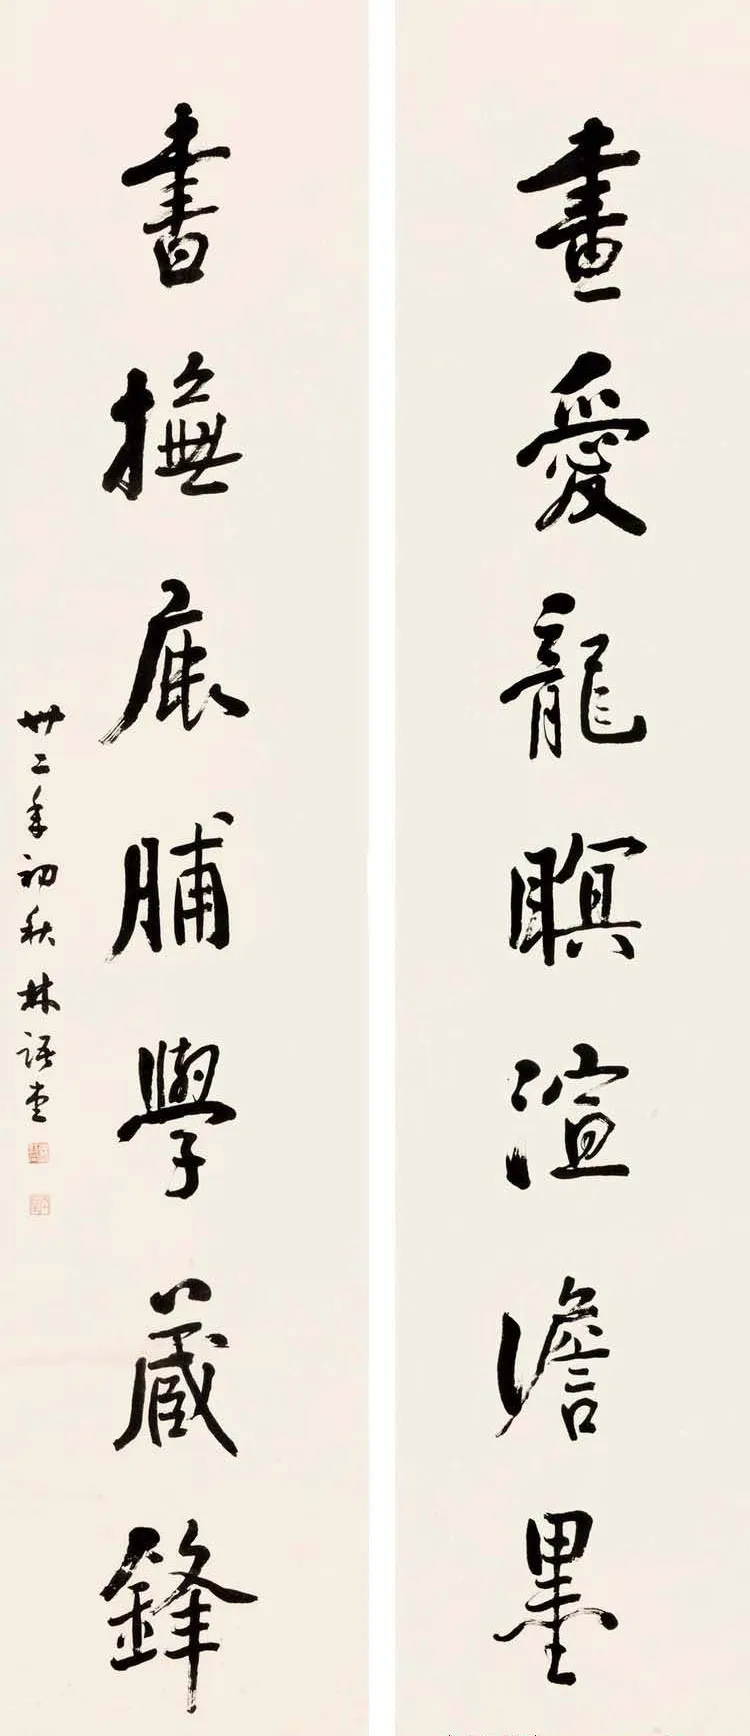 畫愛龍瞑渲澹墨
書撫鹿脯學藏鋒
卅二年初秋林語堂